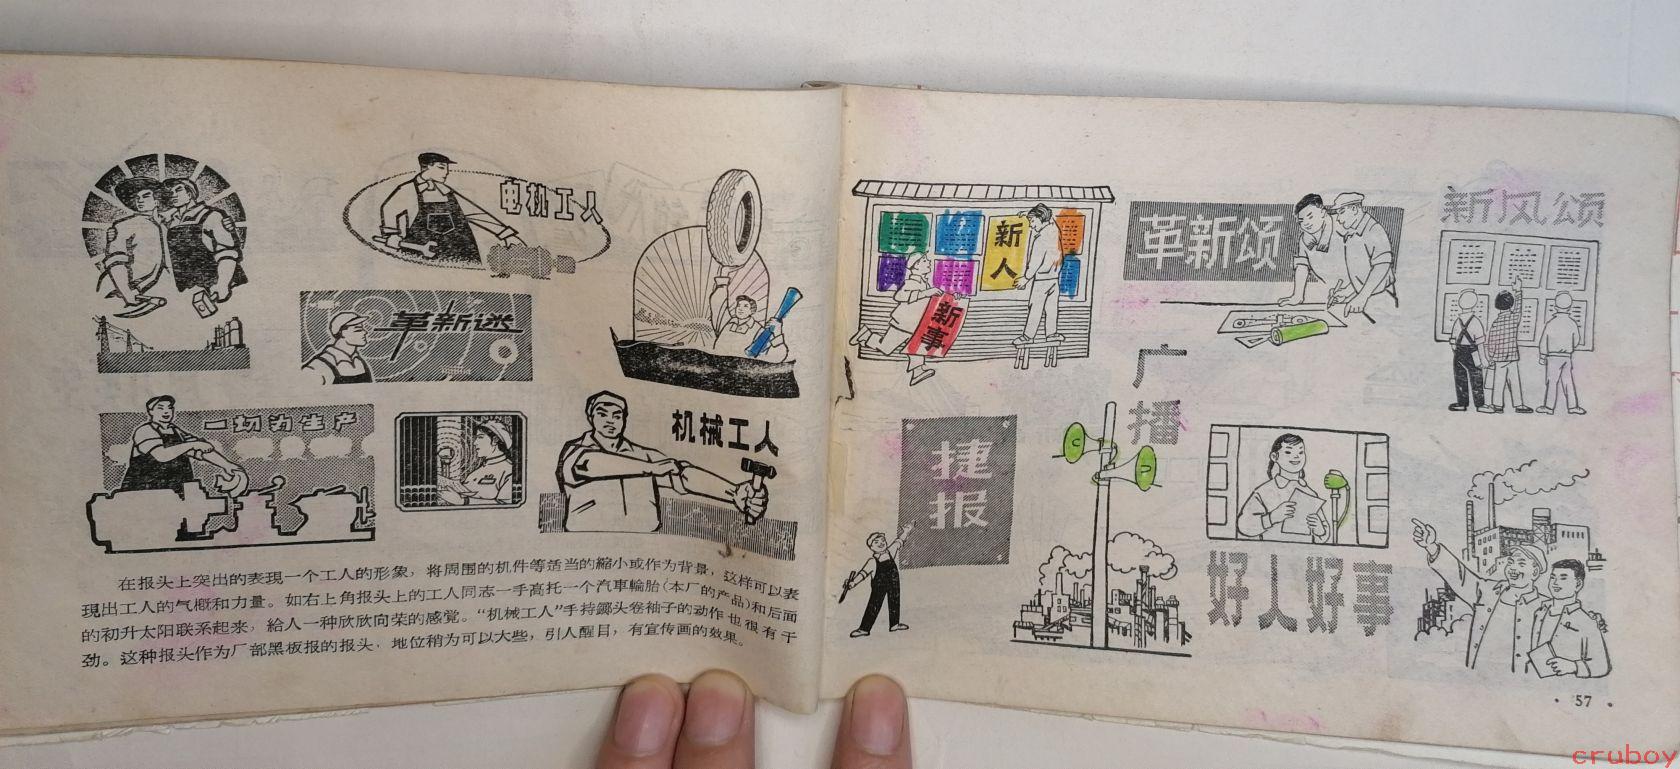 电机工人
革新迷
一切为生产
机械工人
在报头上突出的表現一个工人的形象，将周围的机件等适当的縮小或作为背景，这样可以表
現出工人的气概和力量。如右上角报头上的工人同志一手高托一个汽車輪胎(本厂的产品)和后面
的初升太阳联系起来，給人一种欣欣向荣的感觉。“机械工人”手持鎯头卷袖子的动作也很有干
劲。这种报头作为厂部黑板报的报头，地位稍为可以大些，引人醒目，有宣传画的效果。
新人
新事
革新颂
新风颂
广播
捷报
好人好事
· 57 ·
cruboy